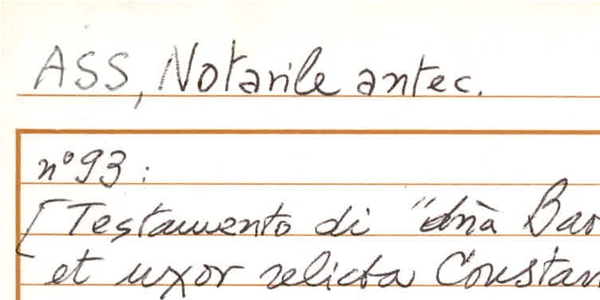 ASS, Notarile antec.
n° 93 :
[Testamento di "dnā Bar
et uxor relicta Constan